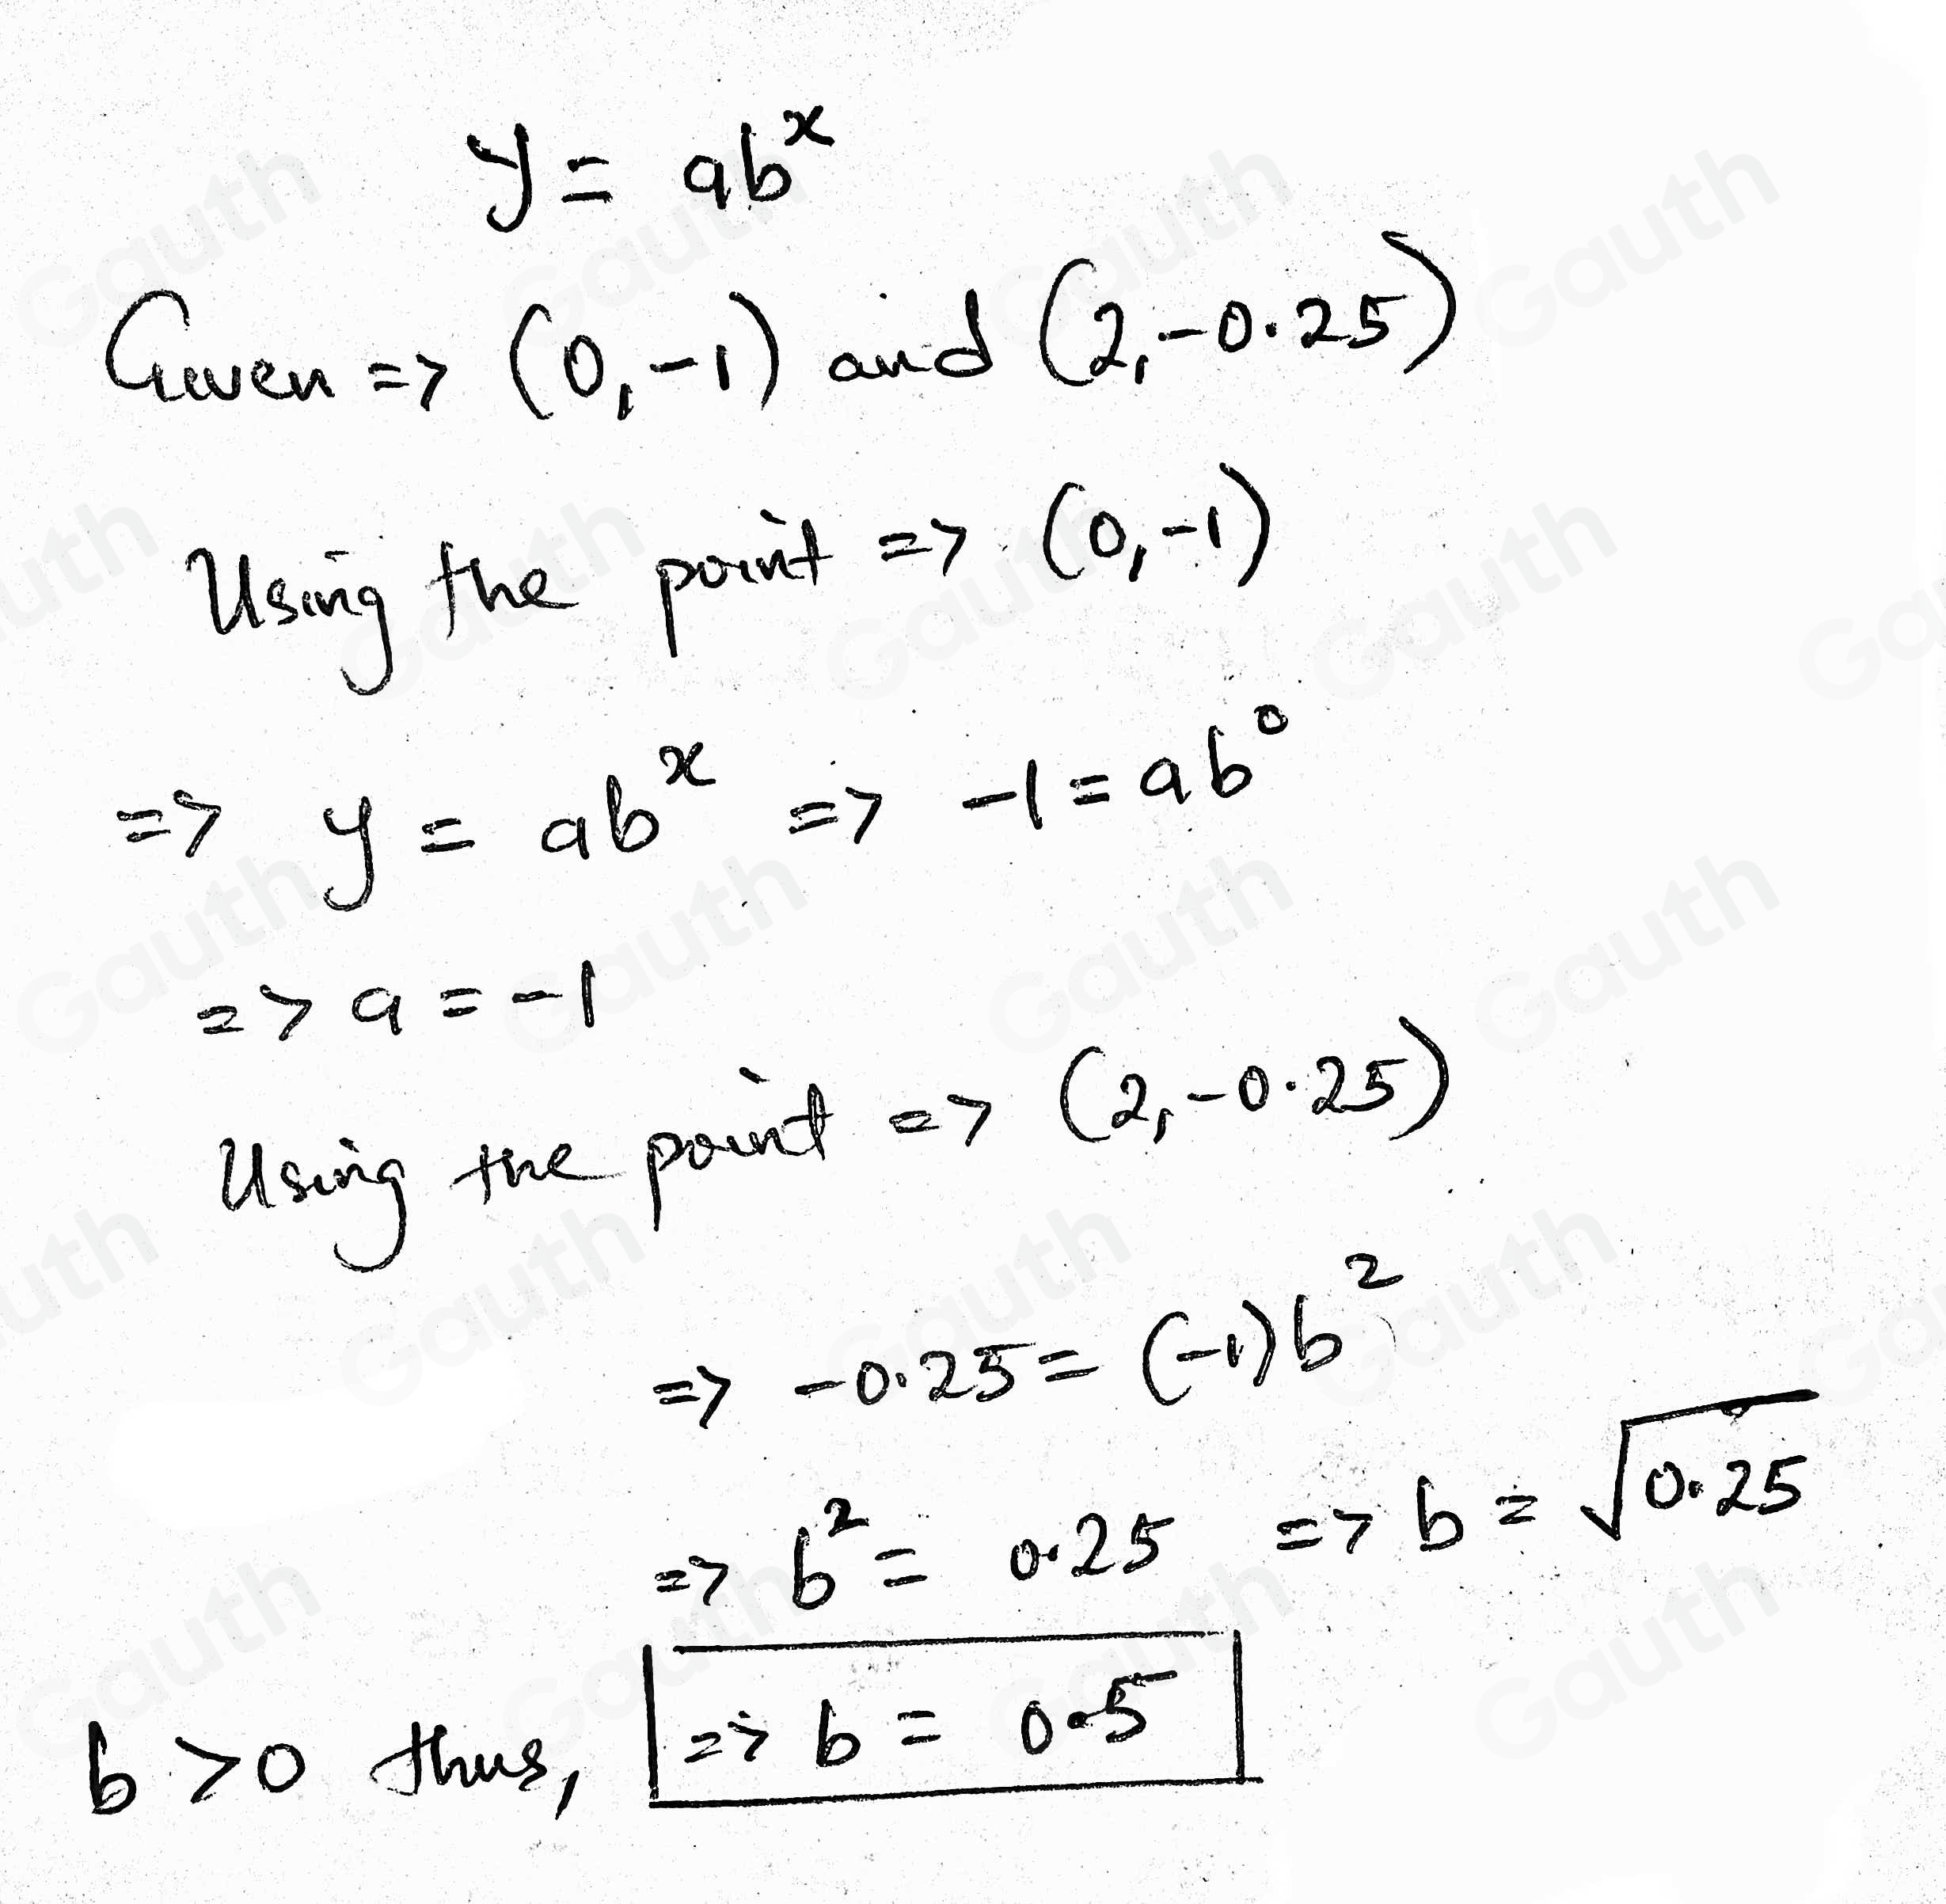 y = ab^x
Given => (0, -1) and (2, -0.25)
Using the point => (0, -1)
=> y = ab^x => -1 = ab^0
=> a = -1
Using the point => (2, -0.25)
=> -0.25 = (-1)b^2
=> b^2 = 0.25 => b = √0.25
b > 0 thus, => b = 0.5
Gauth